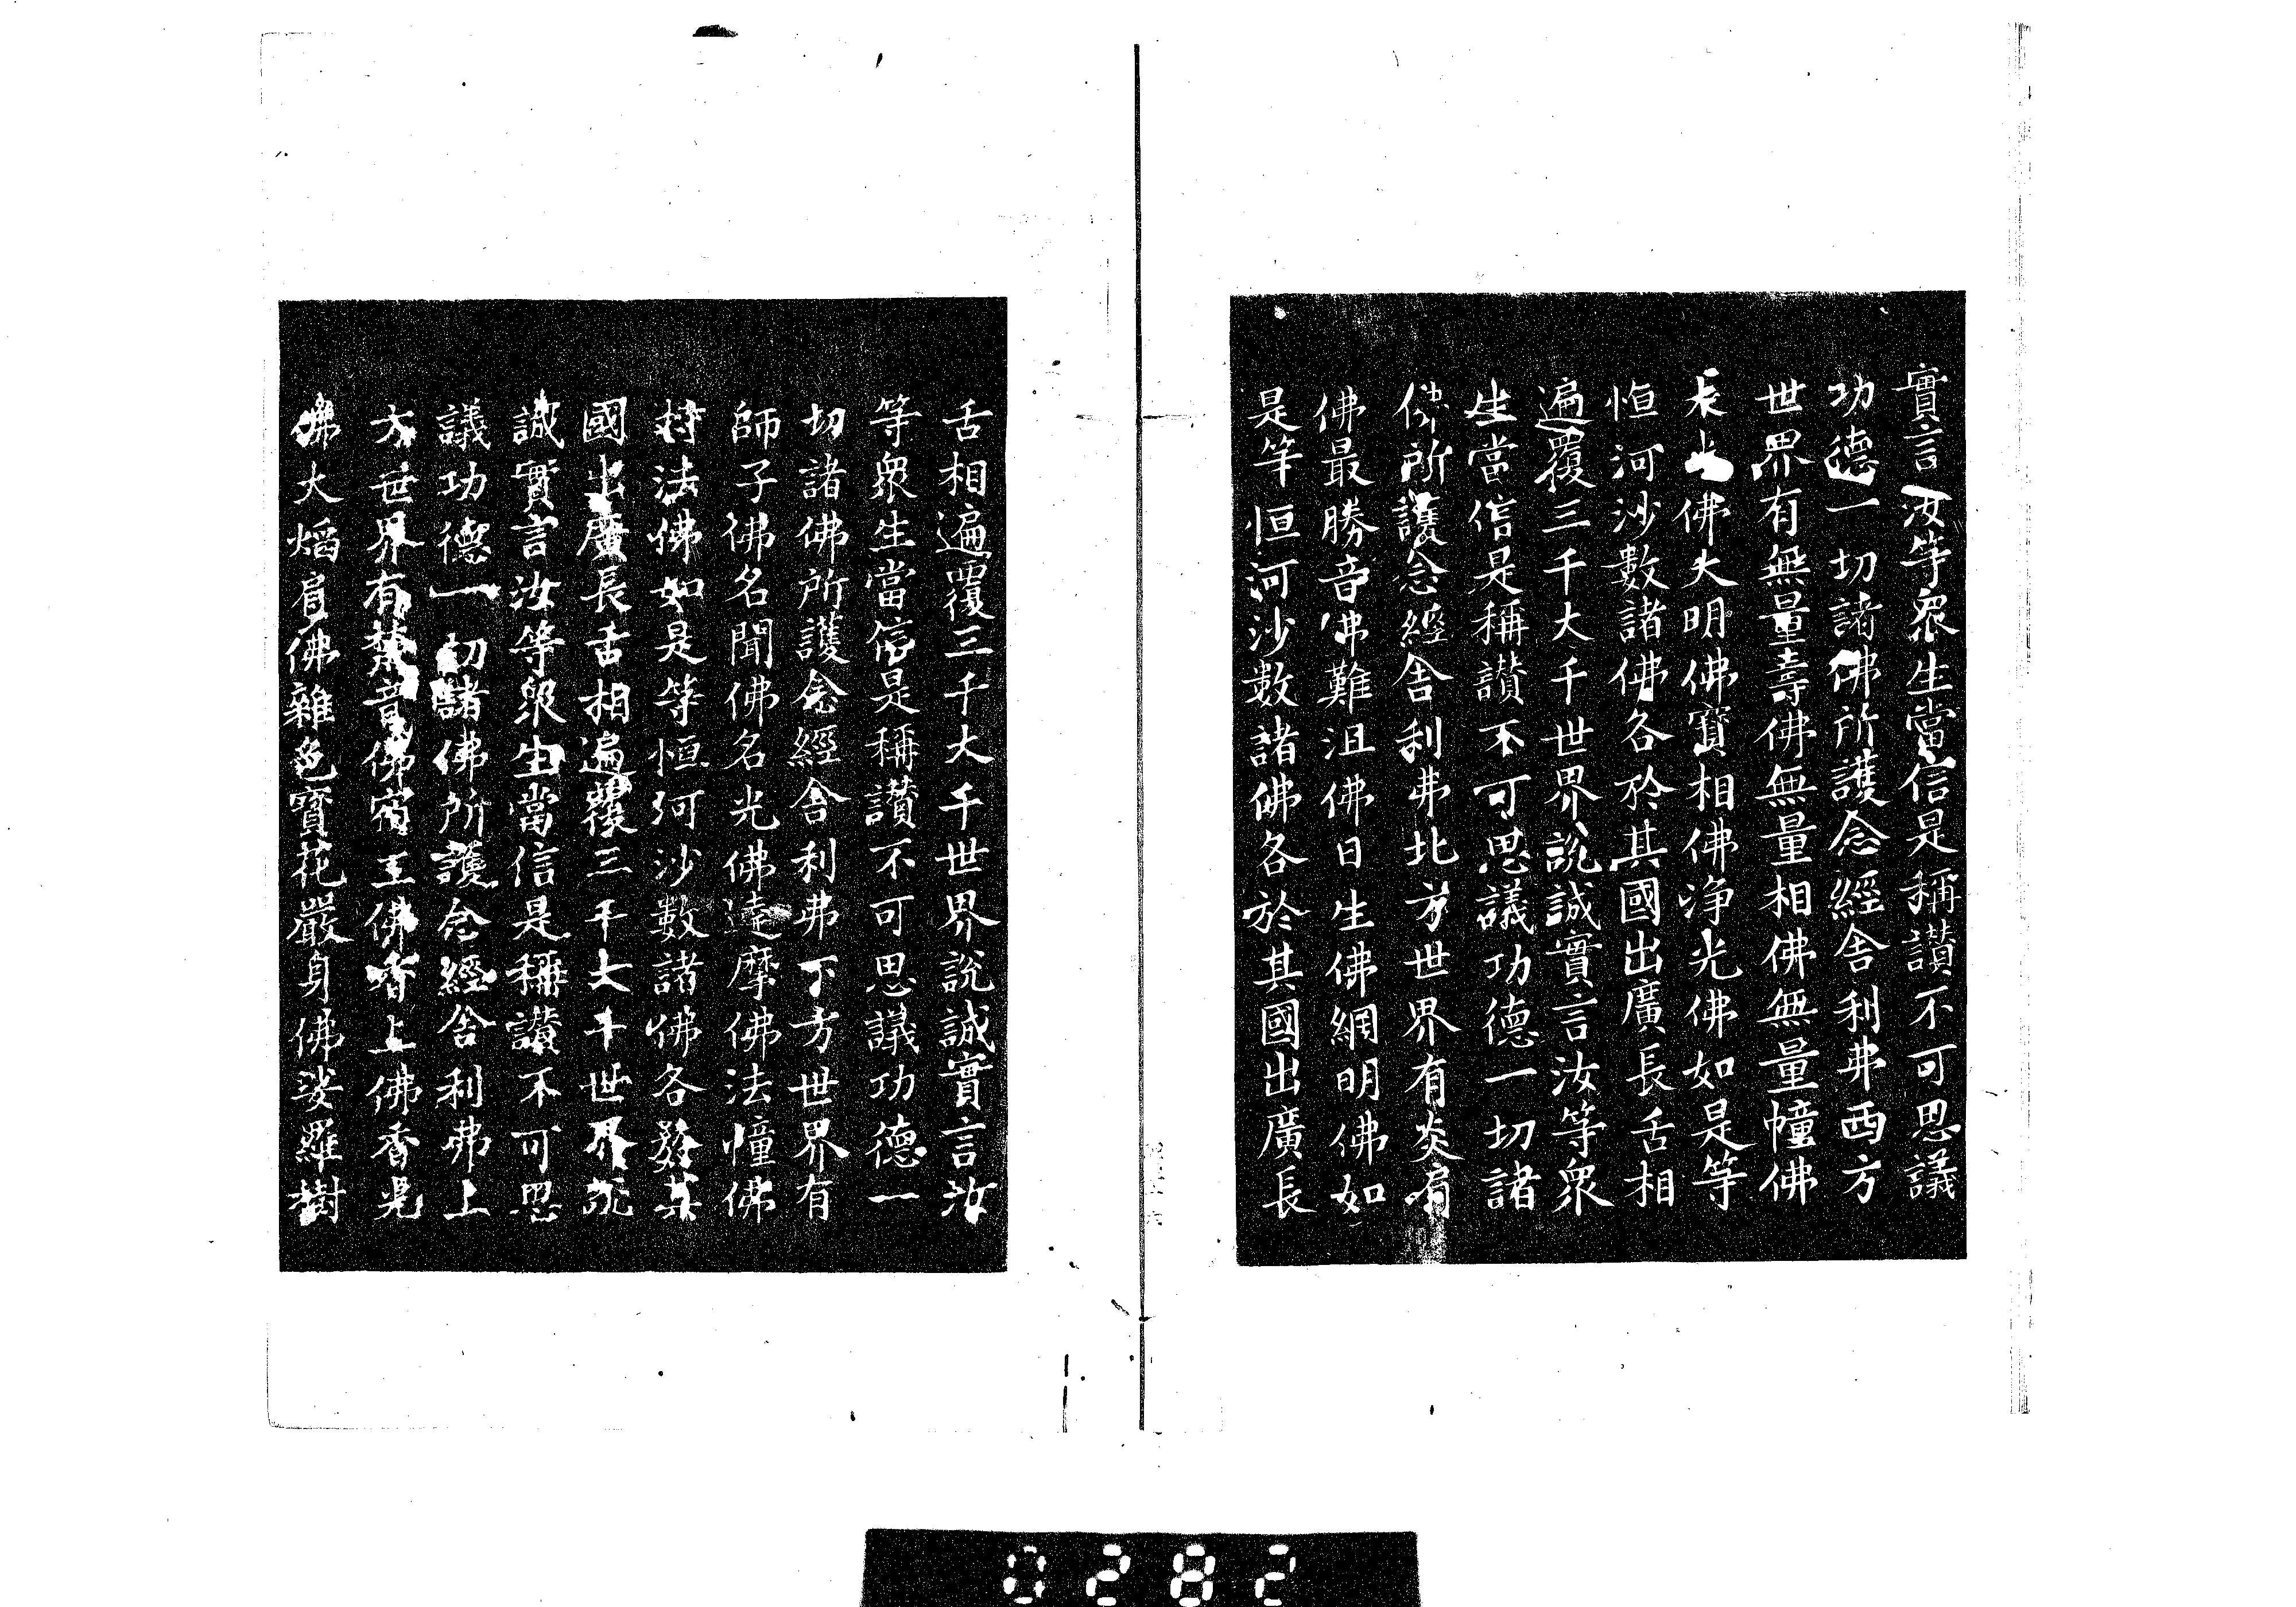 實言汝等衆生當信是稱讃不可思議
功德一切諸佛所護念經舎利弗西方
世界有無量壽佛無量相佛無量幢佛
大光佛大明佛寶相佛淨光佛如是等
恒河沙數諸佛各於其國出廣長舌相
遍覆三千大千世界說誠實言汝等衆
生當信是稱讃不可思議功德一切諸
佛所護念經舎利弗北方世界有炎肩
佛最勝音佛難沮佛日生佛網明佛如
是等恒河沙數諸佛各於其國出廣長
舌相遍覆三千大千世界說誠實言汝
等衆生當信是稱讃不可思議功德一
切諸佛所護念經舎利弗下方世界有
師子佛名聞佛名光佛達摩佛法幢佛
持法佛如是等恒河沙數諸佛各於其
國出廣長舌相遍覆三千大千世界說
誠實言汝等衆生當信是稱讃不可思
議功德一切諸佛所護念經舎利弗上
方世界有梵音佛宿王佛香上佛香光
佛大焰肩佛雜色寶花嚴身佛娑羅樹
0282